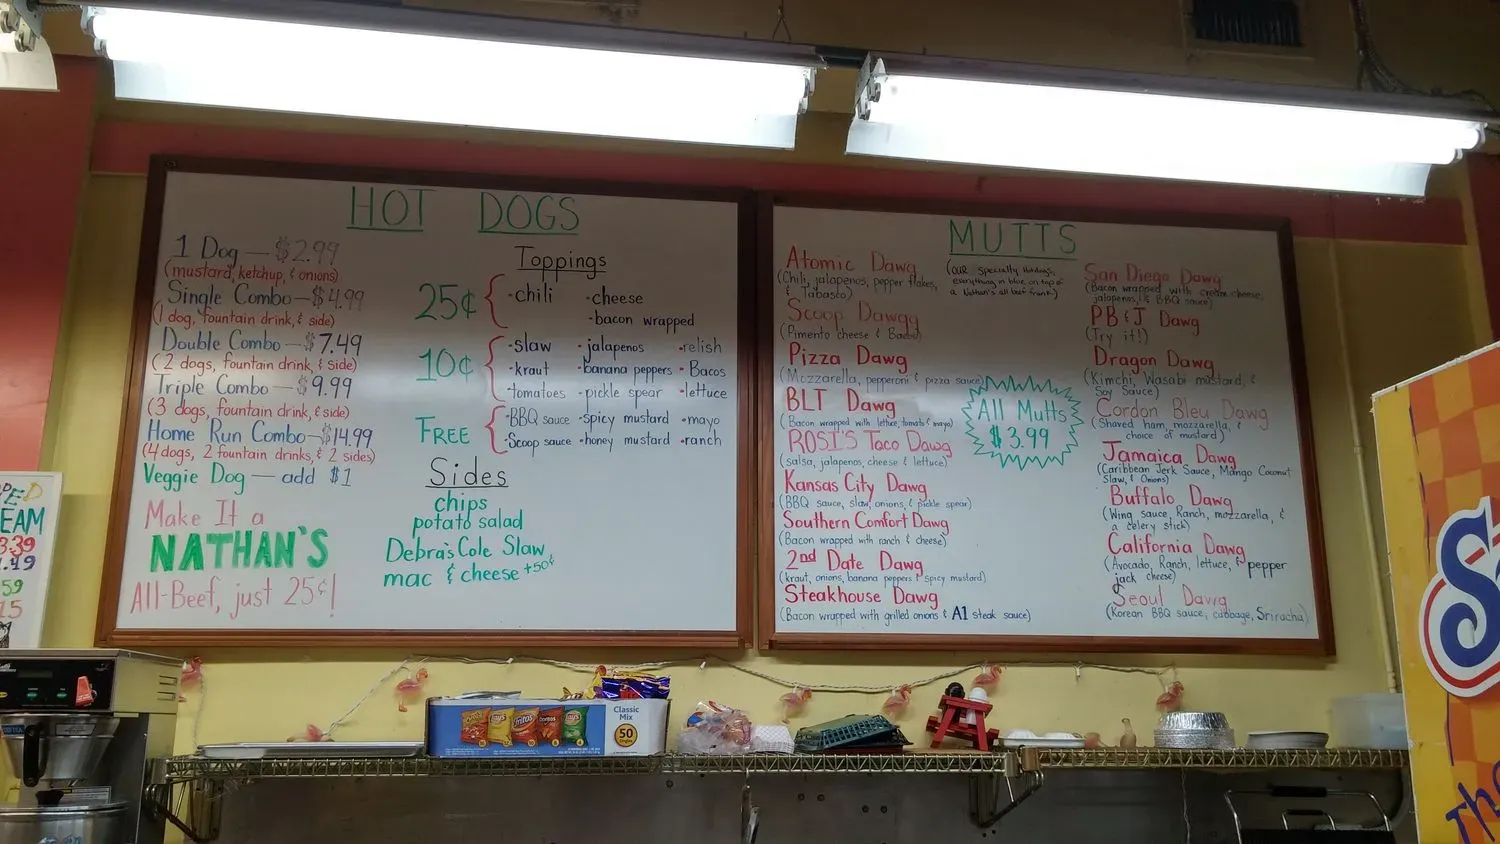 HOT DOGS
1 Dog — $2.99
(mustard, ketchup, & onions)
Single Combo — $4.99
(1 dog, fountain drink, & side)
Double Combo — $7.49
(2 dogs, fountain drink, & side)
Triple Combo — $9.99
(3 dogs, fountain drink, & side)
Home Run Combo — $14.99
(4 dogs, 2 fountain drinks, & 2 sides)
Veggie Dog — add $1
Make It a
NATHAN'S
All-Beef, just 25¢!
Toppings
25¢
· chili · cheese
· bacon wrapped
10¢
· slaw · jalapenos · relish
· kraut · banana peppers · Bacos
· tomatoes · pickle spear · lettuce
FREE
· BBQ sauce · spicy mustard · mayo
· Scoop sauce · honey mustard · ranch
Sides
chips
potato salad
Debra's Cole Slaw
mac & cheese +50¢
MUTTS
(our specialty hotdogs,
everything in blue on top of
a Nathan's all beef frank)
Atomic Dawg
(Chili, jalapenos, pepper flakes,
& Tabasco)
Scoop Dawgg
(Pimento cheese & Bacos)
Pizza Dawg
(Mozzarella, pepperoni & pizza sauce)
BLT Dawg
(Bacon wrapped with lettuce, tomato & mayo)
ROSI'S Taco Dawg
(salsa, jalapenos, cheese & lettuce)
Kansas City Dawg
(BBQ sauce, slaw, onions, & pickle spear)
Southern Comfort Dawg
(Bacon wrapped with ranch & cheese)
2nd Date Dawg
(kraut, onions, banana peppers & spicy mustard)
Steakhouse Dawg
(Bacon wrapped with grilled onions & A1 steak sauce)
All Mutts
$3.99
San Diego Dawg
(Bacon wrapped with cream cheese,
jalapenos, & BBQ sauce)
PB & J Dawg
(Try it!)
Dragon Dawg
(Kimchi, Wasabi mustard, &
Soy Sauce)
Cordon Bleu Dawg
(Shaved ham, mozzarella, &
choice of mustard)
Jamaica Dawg
(Caribbean Jerk Sauce, Mango Coconut
Slaw, & Onions)
Buffalo Dawg
(Wing sauce, Ranch, mozzarella, &
a celery stick)
California Dawg
(Avocado, Ranch, lettuce, & pepper
jack cheese)
Seoul Dawg
(Korean BBQ sauce, cabbage, Sriracha)
Classic
Mix
50
Lay's
Fritos
Doritos
Lay's